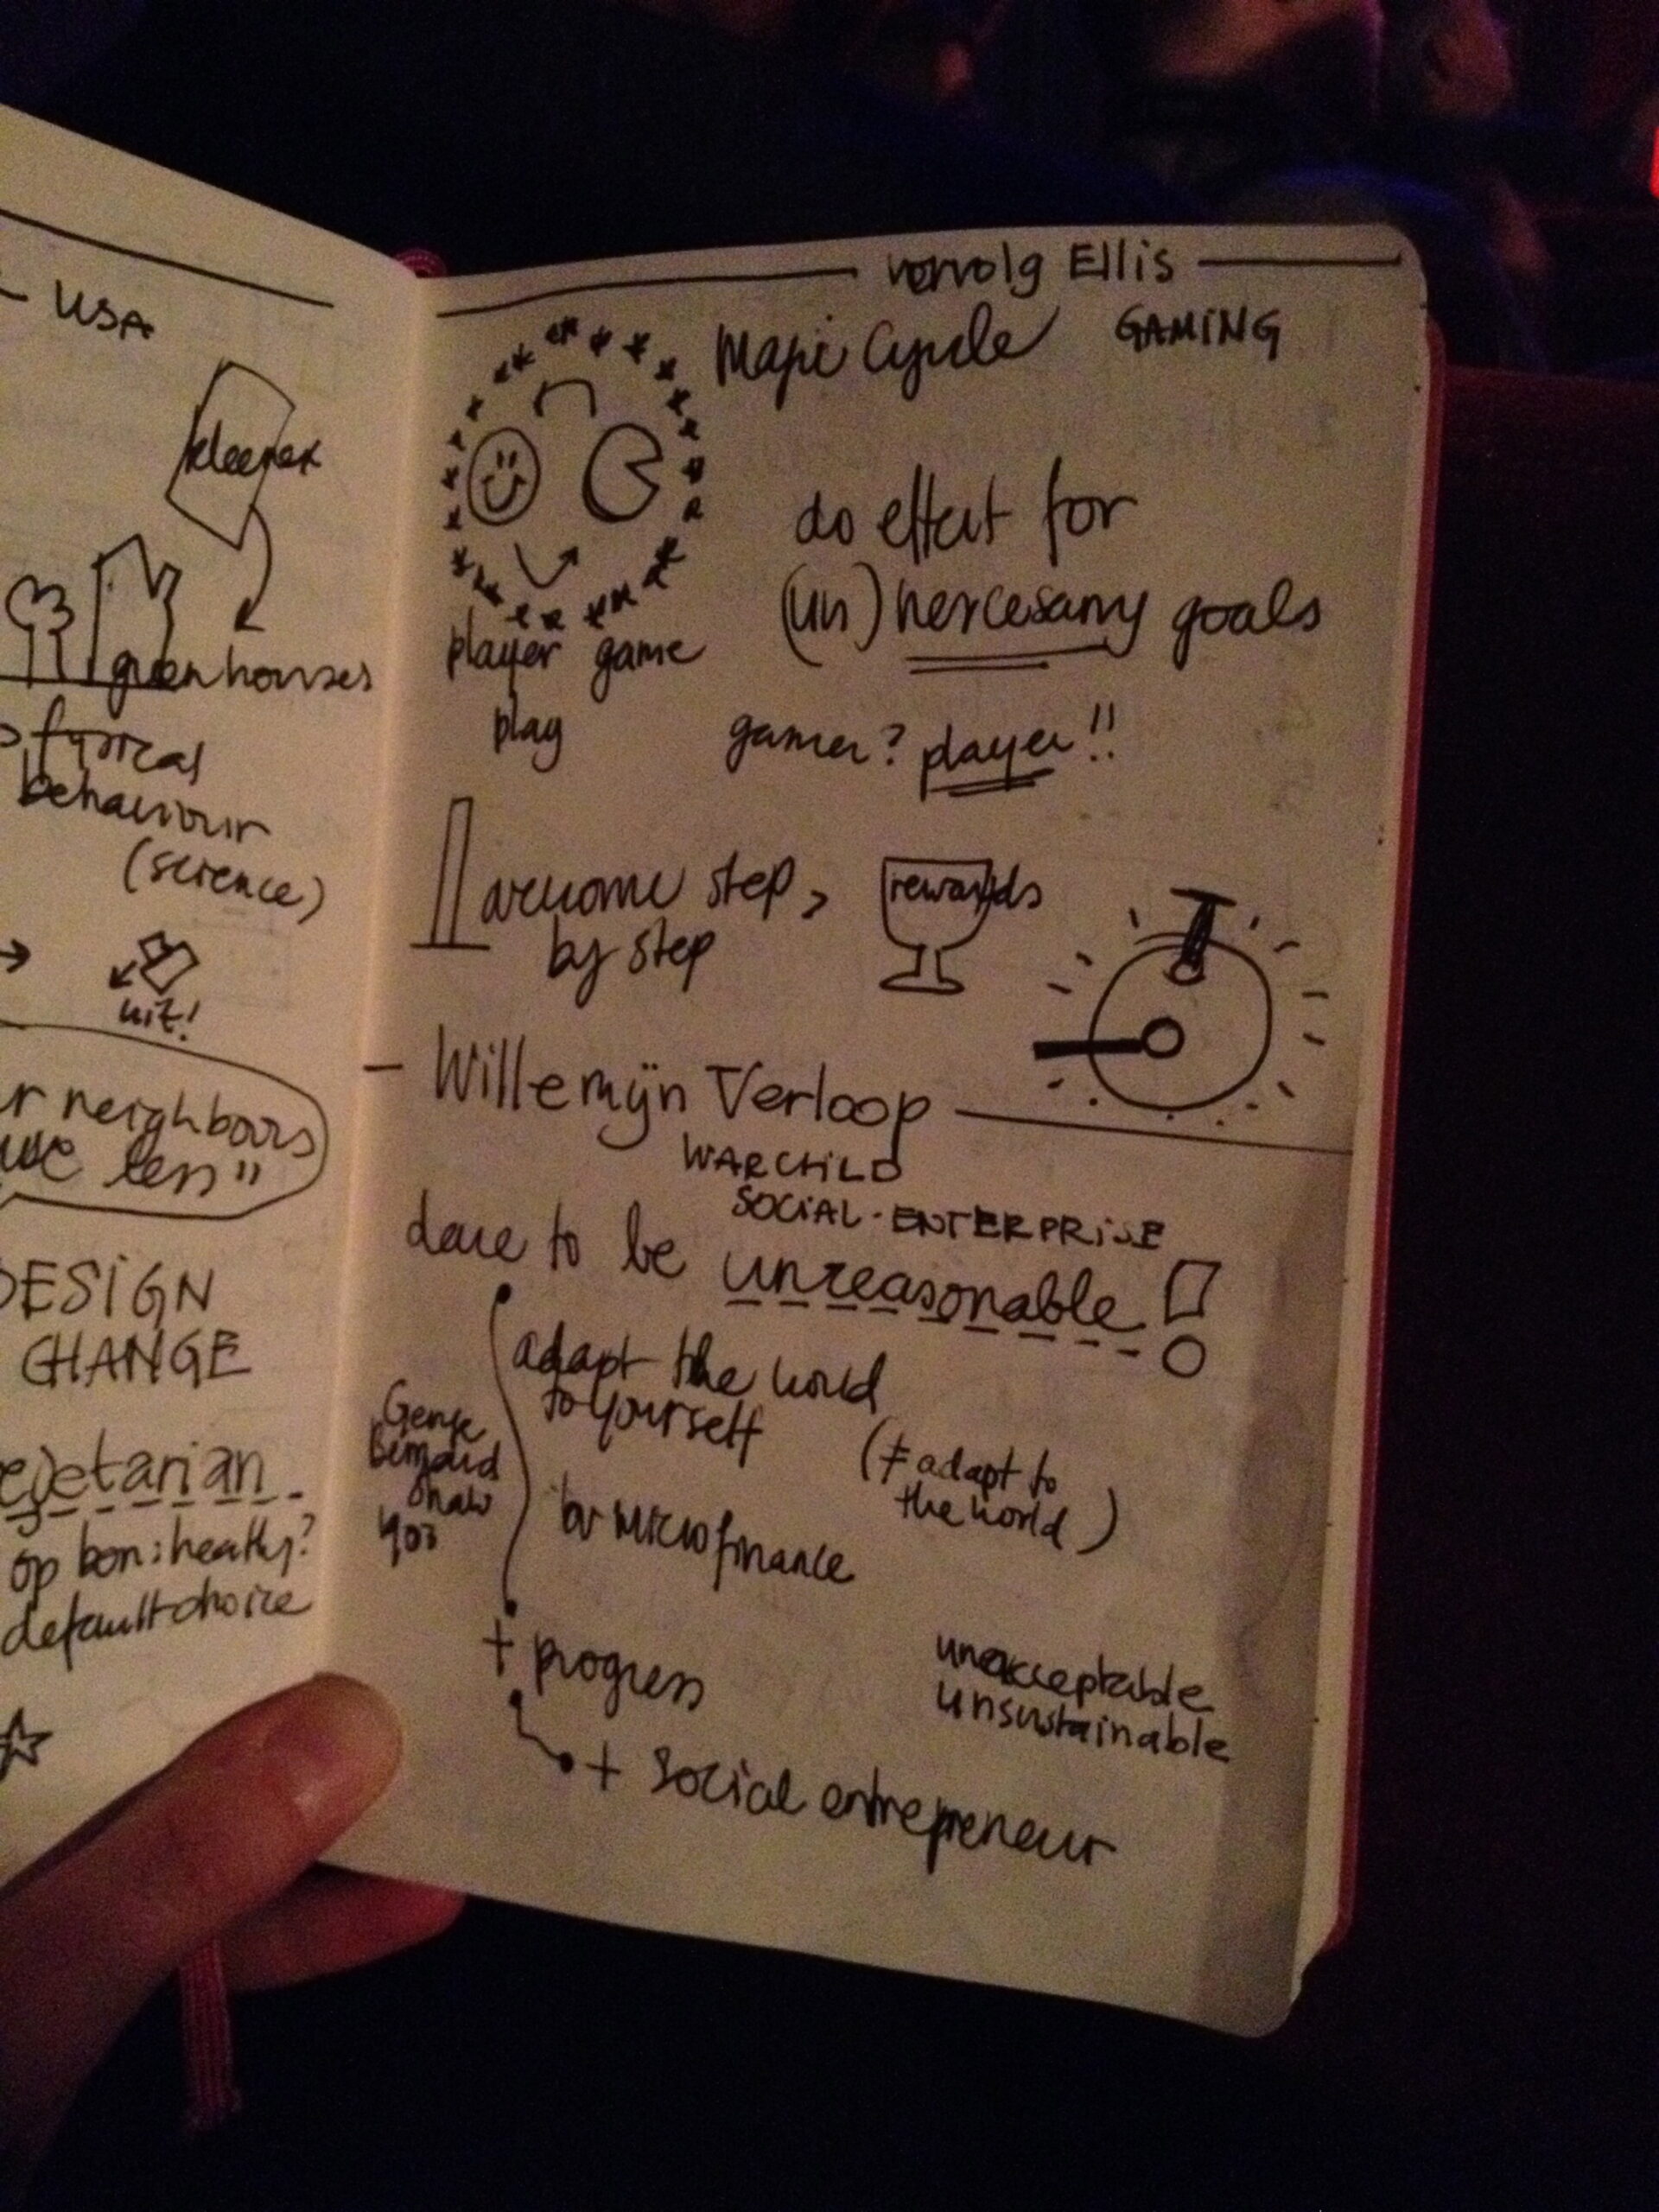 USA
kleenex
greenhouses
fysical
behaviour
(science)
uit!
r neighbours
use less"
DESIGN
CHANGE
egetarian
op bon: healthy?
default choice
vervolg Ellis
Magic Cycle GAMING
do effort for
(un) nercesarry goals
player game
play
gamer? player!!
step,
by step
rewards
Willemijn Verloop
WARCHILD
SOCIAL-ENTERPRISE
dare to be unreasonable!
adapt the world
to yourself
(≠ adapt to
the world)
George
Bernard
Shaw
1903
bv microfinance
+ progress
unacceptable
unsustainable
+ social entrepreneur